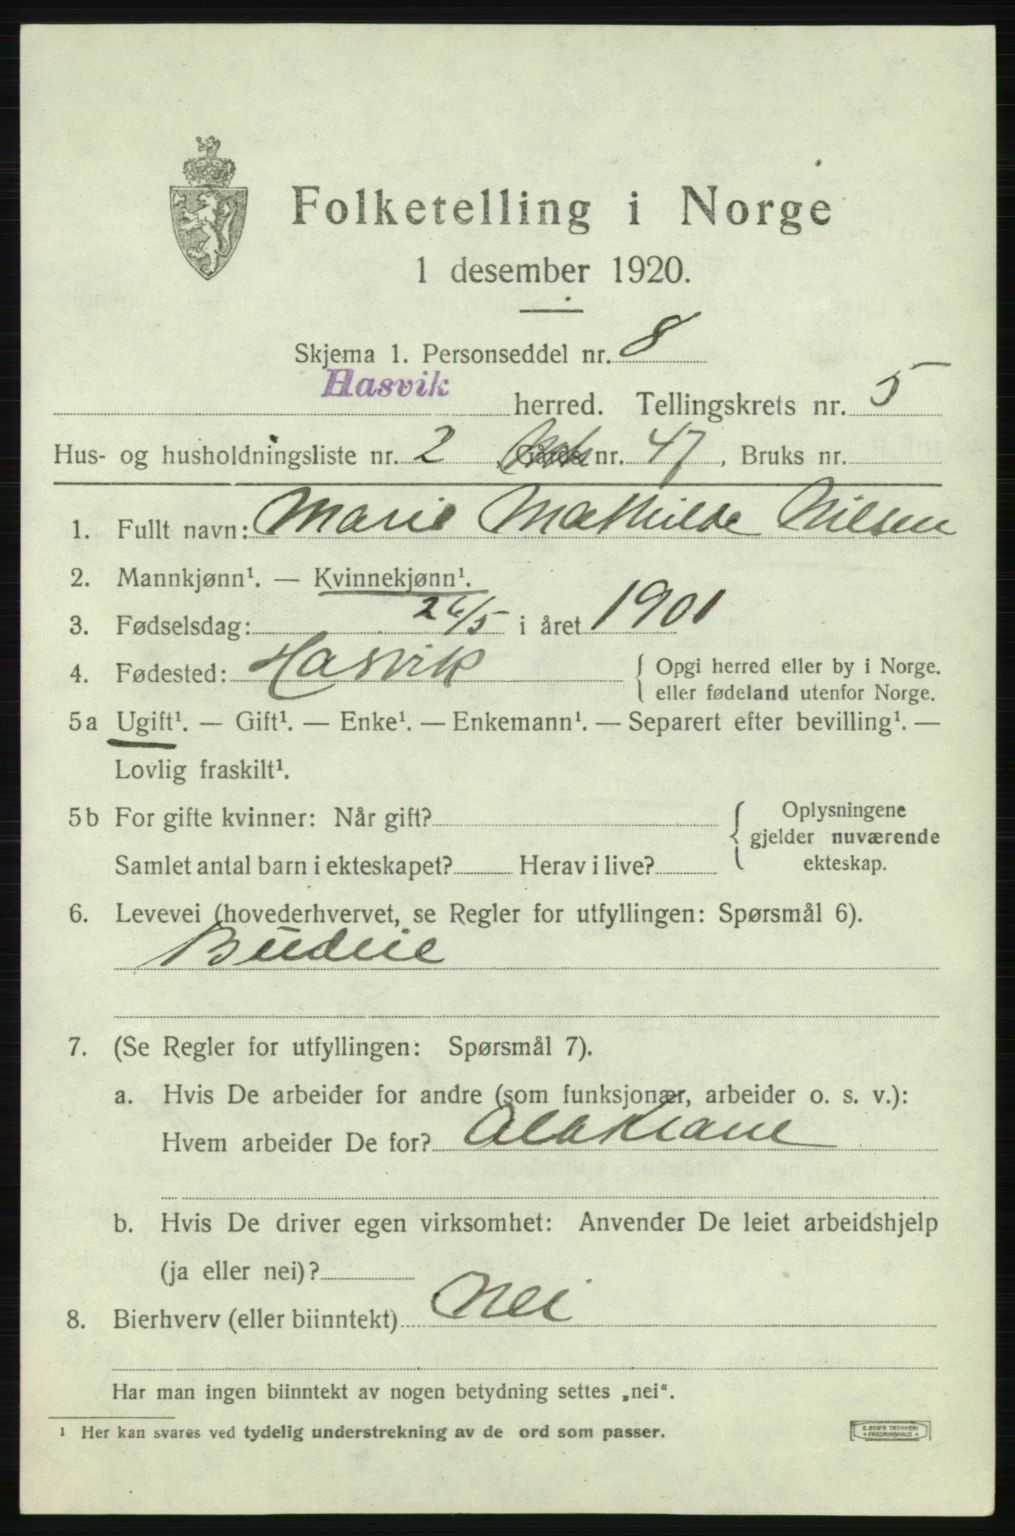 Folketelling i Norge
1 desember 1920.
Skjema 1. Personseddel nr. 8
Hasvik herred. Tellingskrets nr. 5
Hus- og husholdningsliste nr. 2, nr. 47, Bruks nr.
1. Fullt navn: Marie Mathilde Nilsen
2. Mannkjønn¹. — Kvinnekjønn¹.
3. Fødselsdag: 26/5 i året 1901
4. Fødested: Hasvik { Opgi herred eller by i Norge.
eller fødeland utenfor Norge.
5a Ugift¹. — Gift¹. — Enke¹. — Enkemann¹. — Separert efter bevilling¹. —
Lovlig fraskilt¹.
5b For gifte kvinner: Når gift? { Oplysningene
gjelder nuværende
Samlet antal barn i ekteskapet? Herav i live? ekteskap.
6. Levevei (hovederhvervet, se Regler for utfyllingen: Spørsmål 6).
Budeie
7. (Se Regler for utfyllingen: Spørsmål 7).
a. Hvis De arbeider for andre (som funksjonær, arbeider o. s. v.):
Hvem arbeider De for?
b. Hvis De driver egen virksomhet: Anvender De leiet arbeidshjelp
(ja eller nei)?
8. Bierhverv (eller biinntekt) Nei
Har man ingen biinntekt av nogen betydning settes „nei“.
¹ Her kan svares ved tydelig understrekning av de ord som passer.